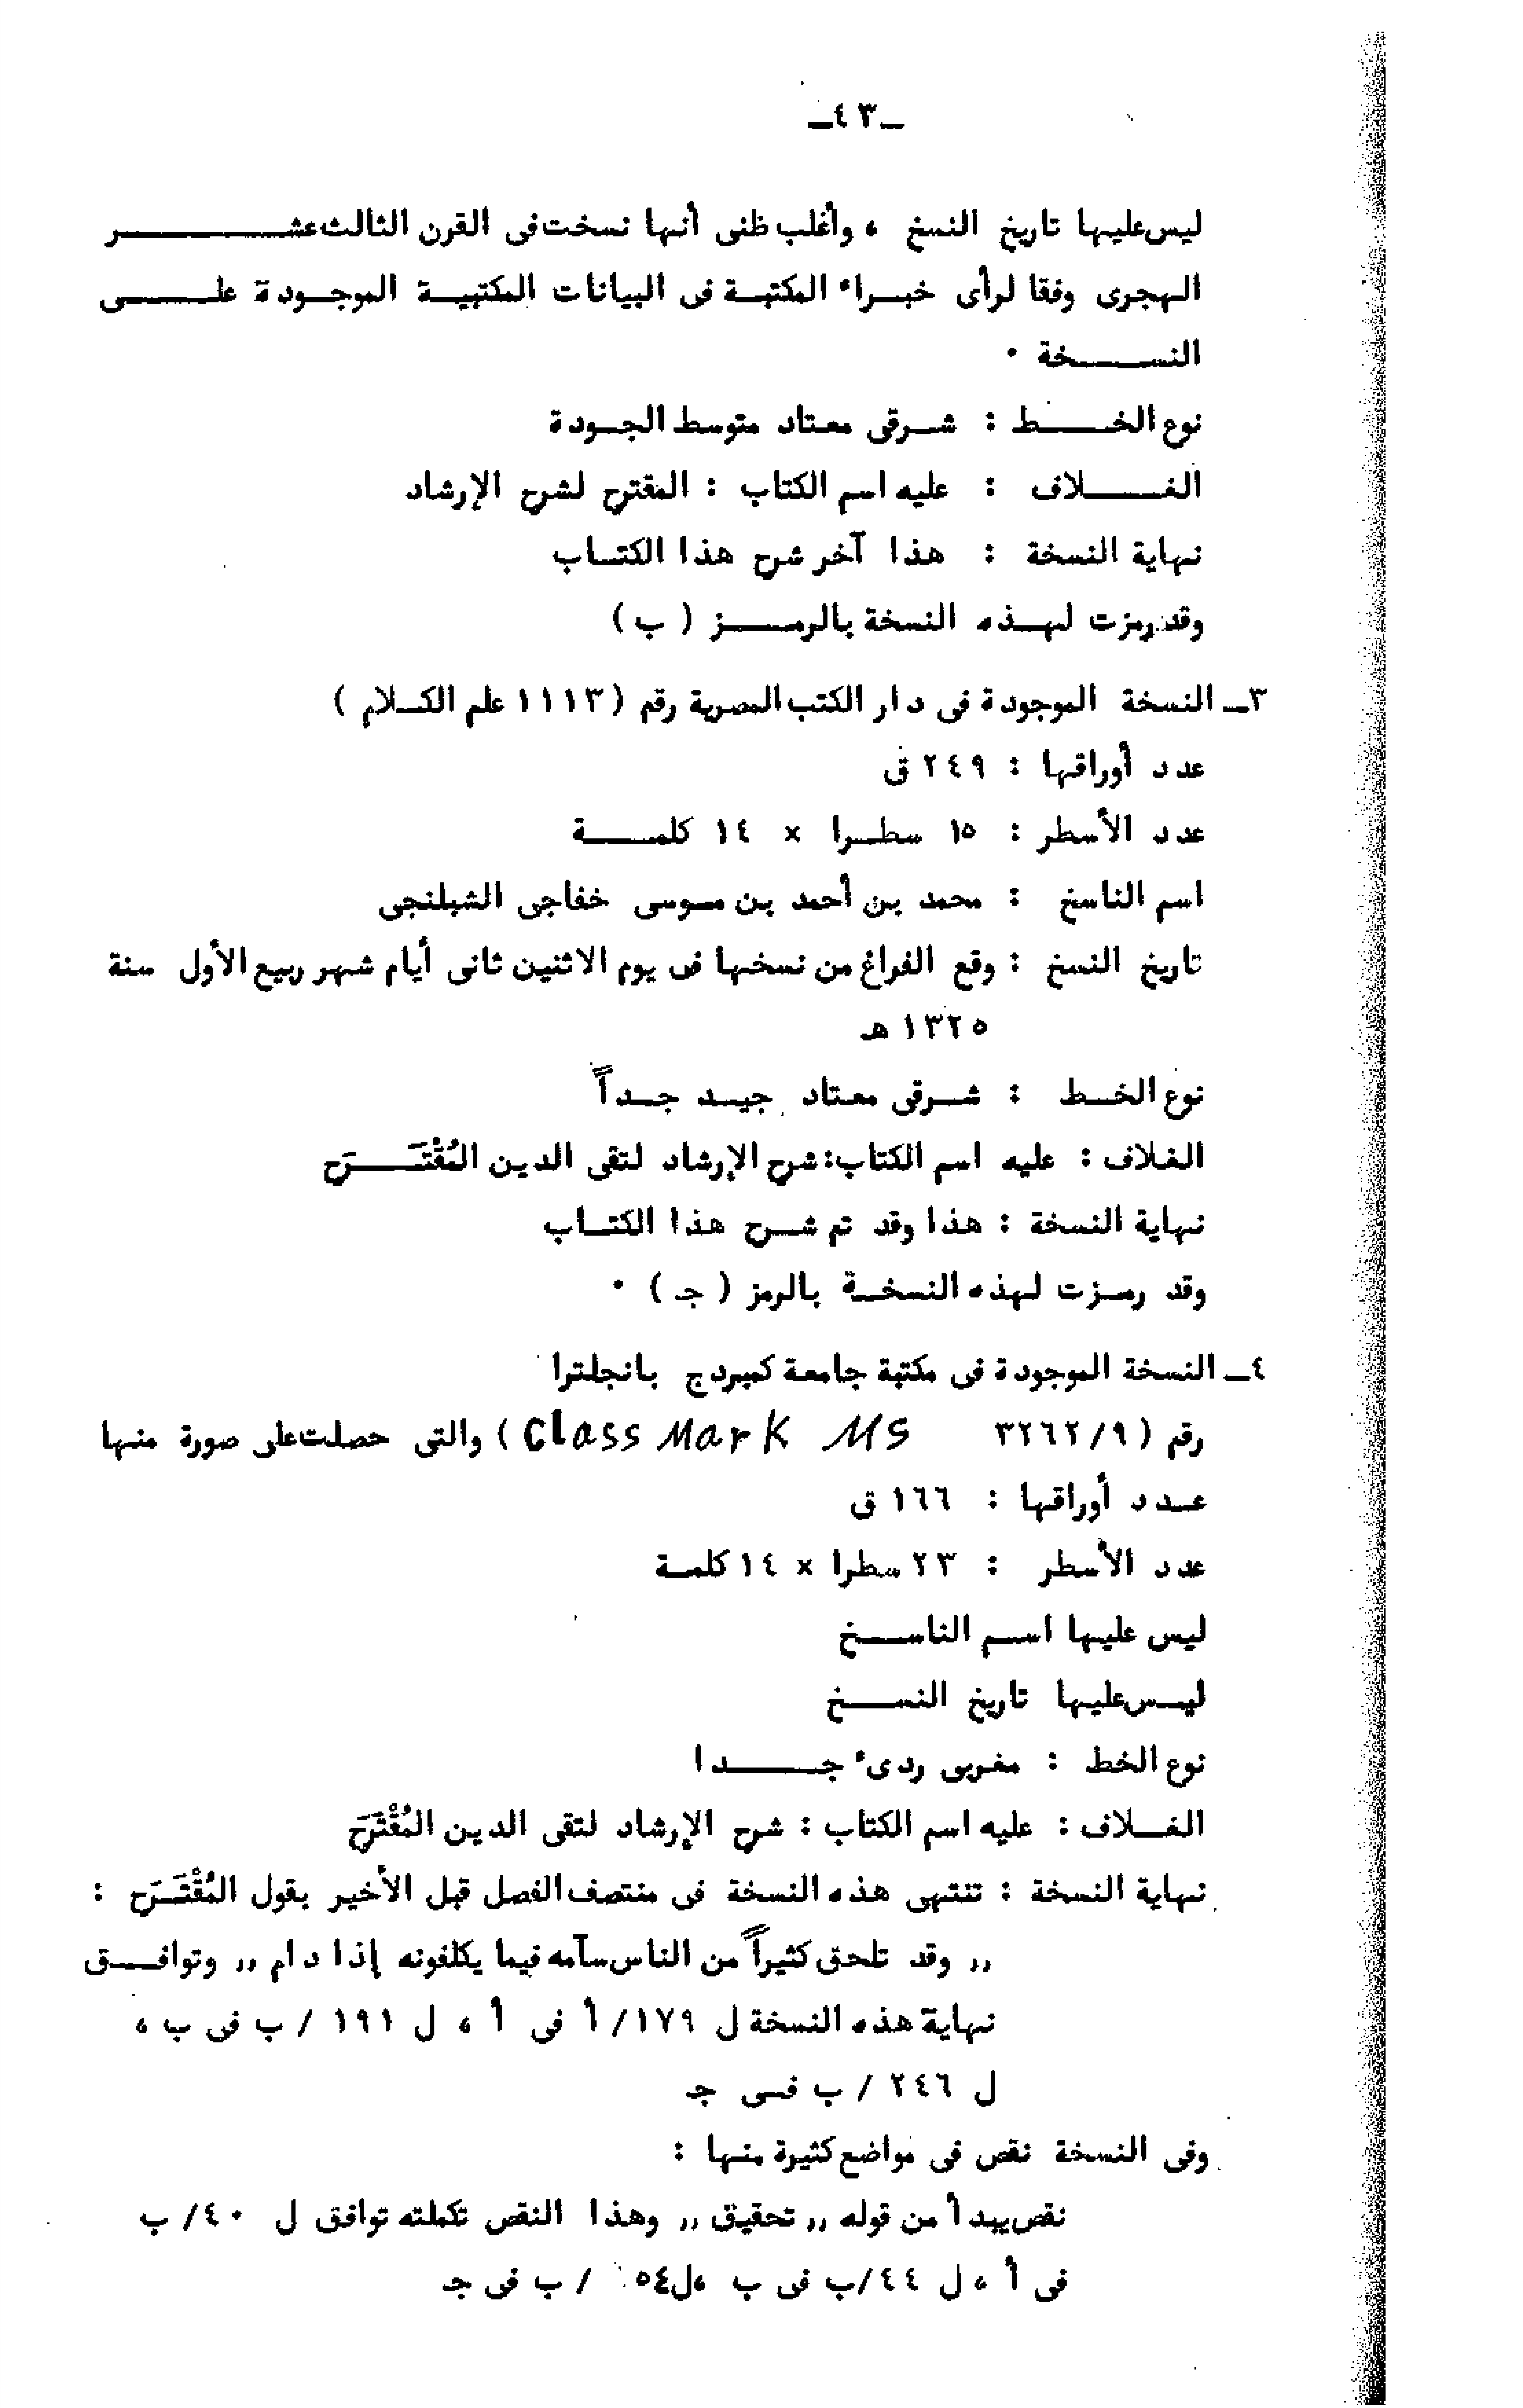 ـ٤٣ـ
ليس عليها تاريخ النسخ ، وأغلب ظنى أنها نسخت فى القرن الثالث عشر
الهجرى وفقا لرأى خبراء المكتبة فى البيانات المكتبية الموجودة على
النسخة ٠
نوع الخط : شرقى معتاد متوسط الجودة
الغلاف : عليه اسم الكتاب : المقترح لشرح الإرشاد
نهاية النسخة : هذا آخر شرح هذا الكتاب
وقد رمزت لهذه النسخة بالرمز ( ب )
٣ـ النسخة الموجودة فى دار الكتب المصرية رقم ( ١١١٣ علم الكلام )
عدد أوراقها : ٢٤٩ ق
عدد الأسطر : ١٥ سطرا × ١٤ كلمة
اسم الناسخ : محمد بن أحمد بن موسى خفاجى الشبلنجى
تاريخ النسخ : وقع الفراغ من نسخها فى يوم الاثنين ثانى أيام شهر ربيع الأول سنة
١٣٢٥ هـ
نوع الخط : شرقى معتاد جيد جداً
الغلاف : عليه اسم الكتاب : شرح الإرشاد لتقى الدين المُقْتَرَح
نهاية النسخة : هذا وقد تم شرح هذا الكتاب
وقد رمزت لهذه النسخة بالرمز ( جـ ) ٠
٤ـ النسخة الموجودة فى مكتبة جامعة كمبردج بانجلترا
رقم ( ٣٢٦٢/٩ Class Mark MS ) والتى حصلت على صورة منها
عدد أوراقها : ١٦٦ ق
عدد الأسطر : ٢٣ سطرا × ١٤ كلمة
ليس عليها اسم الناسخ
ليس عليها تاريخ النسخ
نوع الخط : مغربى ردىء جدا
الغلاف : عليه اسم الكتاب : شرح الإرشاد لتقى الدين المُقْتَرَح
نهاية النسخة : تنتهى هذه النسخة فى منتصف الفصل قبل الأخير بقول المُقْتَرَح :
,, وقد تلحق كثيراً من الناس سآمه فيما يكلفونه إذا دام ,, وتوافق
نهاية هذه النسخة ل ١٧٩/ أ فى أ ، ل ١٩١ / ب فى ب ،
ل ٢٤٦ / ب فى جـ
وفى النسخة نقص فى مواضع كثيرة منها :
نقص يبدأ من قوله ,, تحقيق ,, وهذا النقص تكملته توافق ل ٤٠/ ب
فى أ ، ل ٤٤/ب فى ب ،ل٥٤ / ب فى جـ